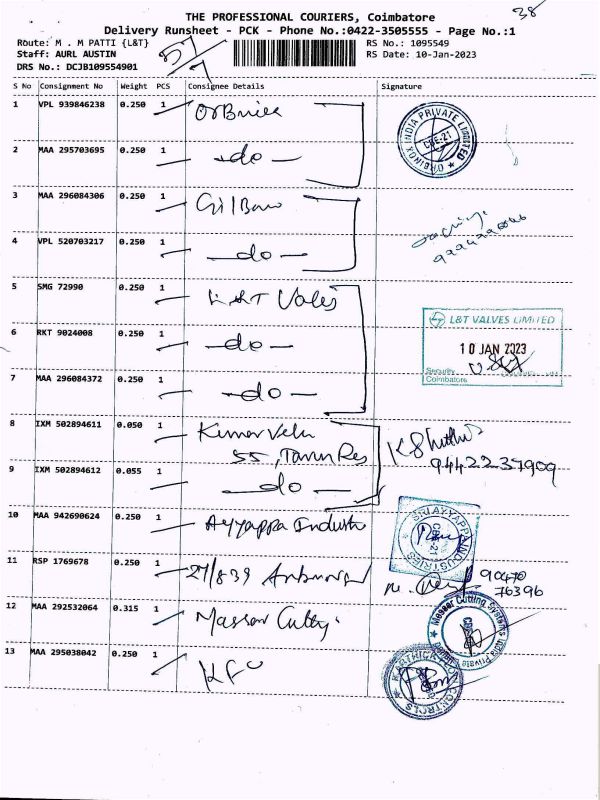 38
THE PROFESSIONAL COURIERS, Coimbatore
Delivery Runsheet - PCK - Phone No.:0422-3505555 - Page No.:1
Route: M . M PATTI {L&T}
RS No.: 1095549
Staff: AURL AUSTIN
RS Date: 10-Jan-2023
DRS No.: DCJB109554901
S No Consignment No Weight PCS Consignee Details Signature
1 VPL 939846238 0.250 1
ORBINOX INDIA PRIVATE LIMITED
CBE-21
2 MAA 295703695 0.250 1 -do-
3 MAA 296084306 0.250 1
4 VPL 520703217 0.250 1 -do-
5 SMG 72990 0.250 1 L&T Valves
L&T VALVES LIMITED
10 JAN 2023
Security
Coimbatore
6 RKT 9024008 0.250 1 -do-
7 MAA 296084372 0.250 1 -do-
8 IXM 502894611 0.050 1 Kumar Velu
55, 
94422 37909
9 IXM 502894612 0.055 1 -do-
10 MAA 942690624 0.250 1 Ayyappa Industri
SRI AYYAPPA INDUSTRIES
CBE-21
11 RSP 1769678 0.250 1 27/839
90470
76396
12 MAA 292532064 0.315 1 Masser Cutting
Messer Cutting Systems India Private Limited
13 MAA 295038042 0.250 1 KFC
KARTHICK FLOW CONTROLS